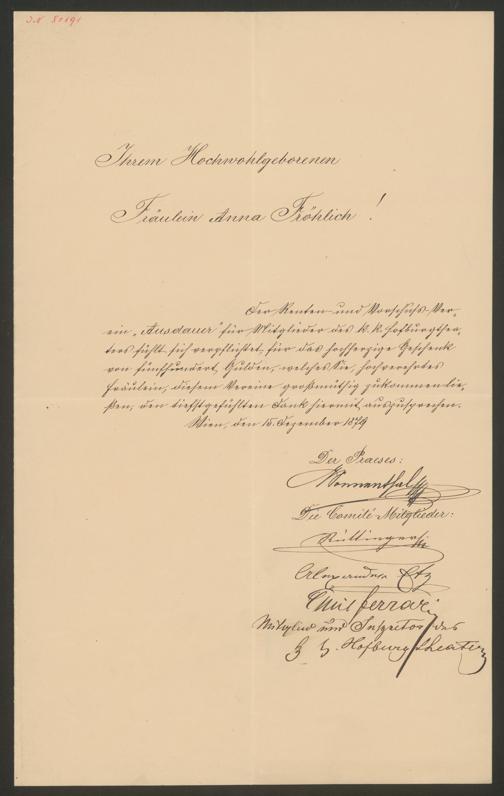 Ihrem Hochwohlgeborenen
Fräulein Anna Fröhlich!
Der Renten- und Vorschuß-Ver-
ein „Ausdauer“ für Mitglieder des k. k. Hofburgthea-
ters fühlt sich verpflichtet, für das hochherzige Geschenk
von fünfhundert Gulden, welches Sie, hochverehrtes
Fräulein, diesem Vereine großmüthig zukommen lie-
ßen, den tiefstgefühlten Dank hiermit auszusprechen.
Wien, den 15. Dezember 1879
Der Praeses:
Sonnenthal
Die Comité-Mitglieder:
Rüttinger
Alexander Etz
Ferrari
Mitglied und Inspector des
k. k. Hofburgtheater